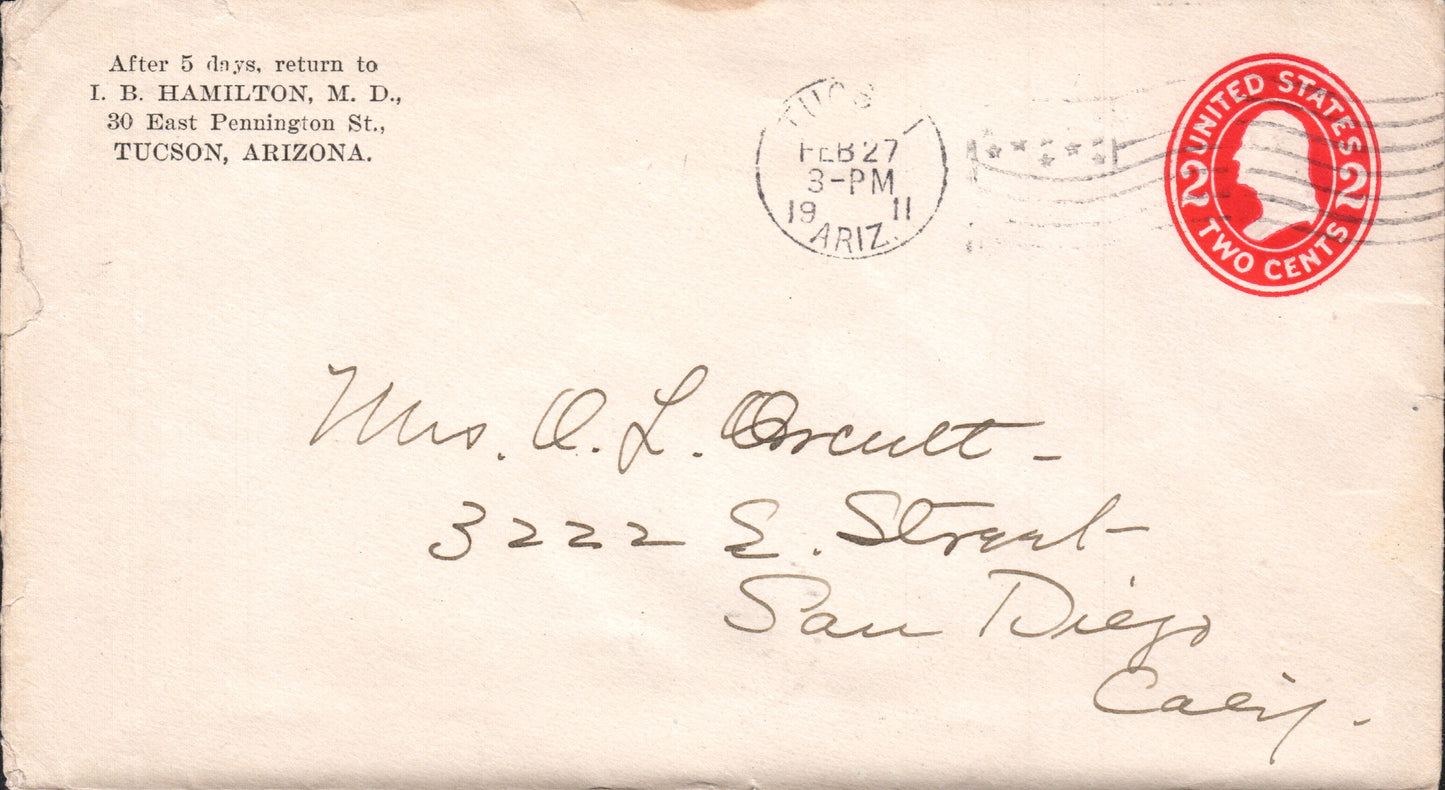 After 5 days, return to
I. B. HAMILTON, M. D.,
30 East Pennington St.,
TUCSON, ARIZONA.
TUCS
FEB 27
3-PM
19 11
ARIZ.
UNITED STATES
2 2
TWO CENTS
Mrs. O. L. Orcutt -
3222 E. Street
San Diego
Calif.